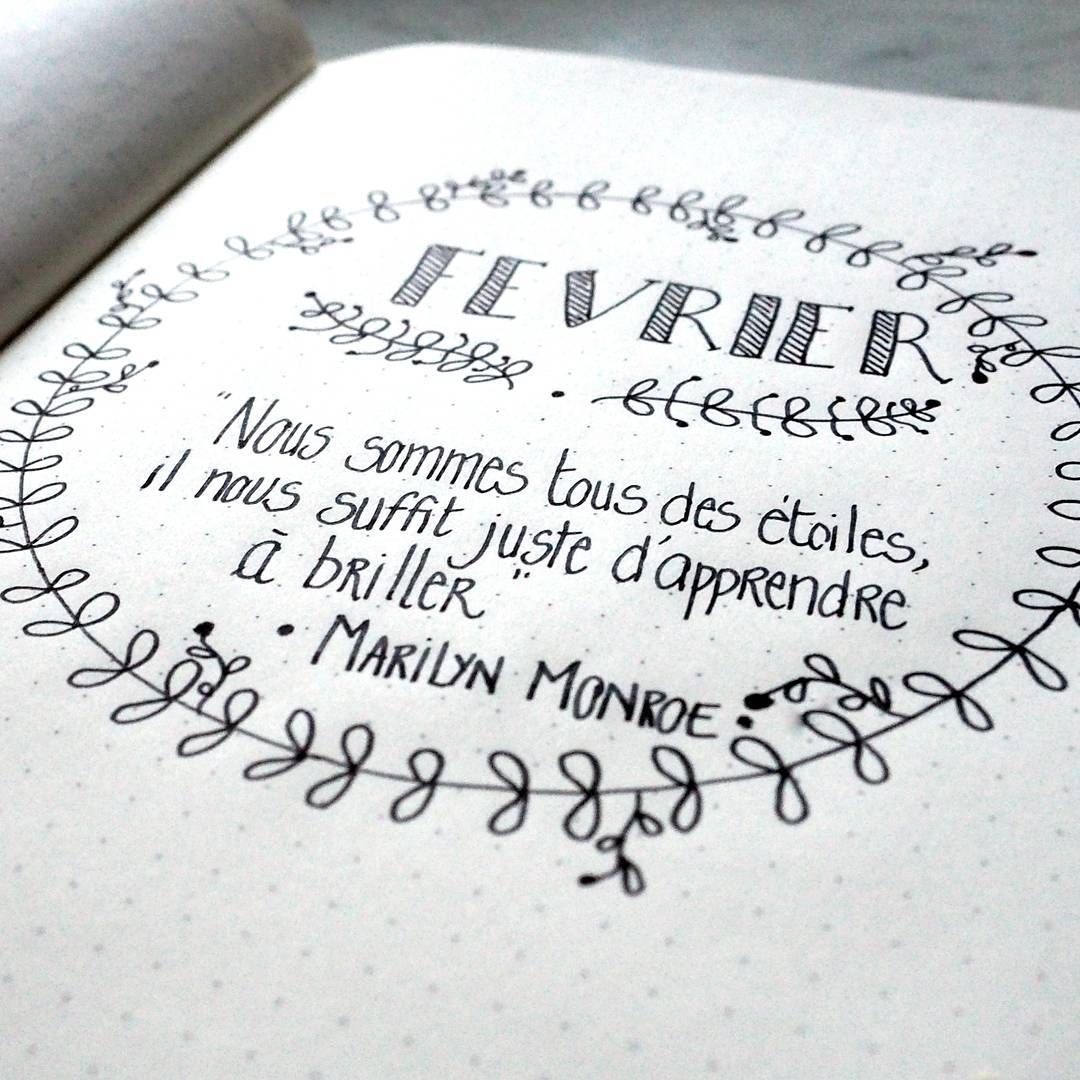 FEVRIER
"Nous sommes tous des étoiles,
il nous suffit juste d'apprendre
à briller"
• MARILYN MONROE •